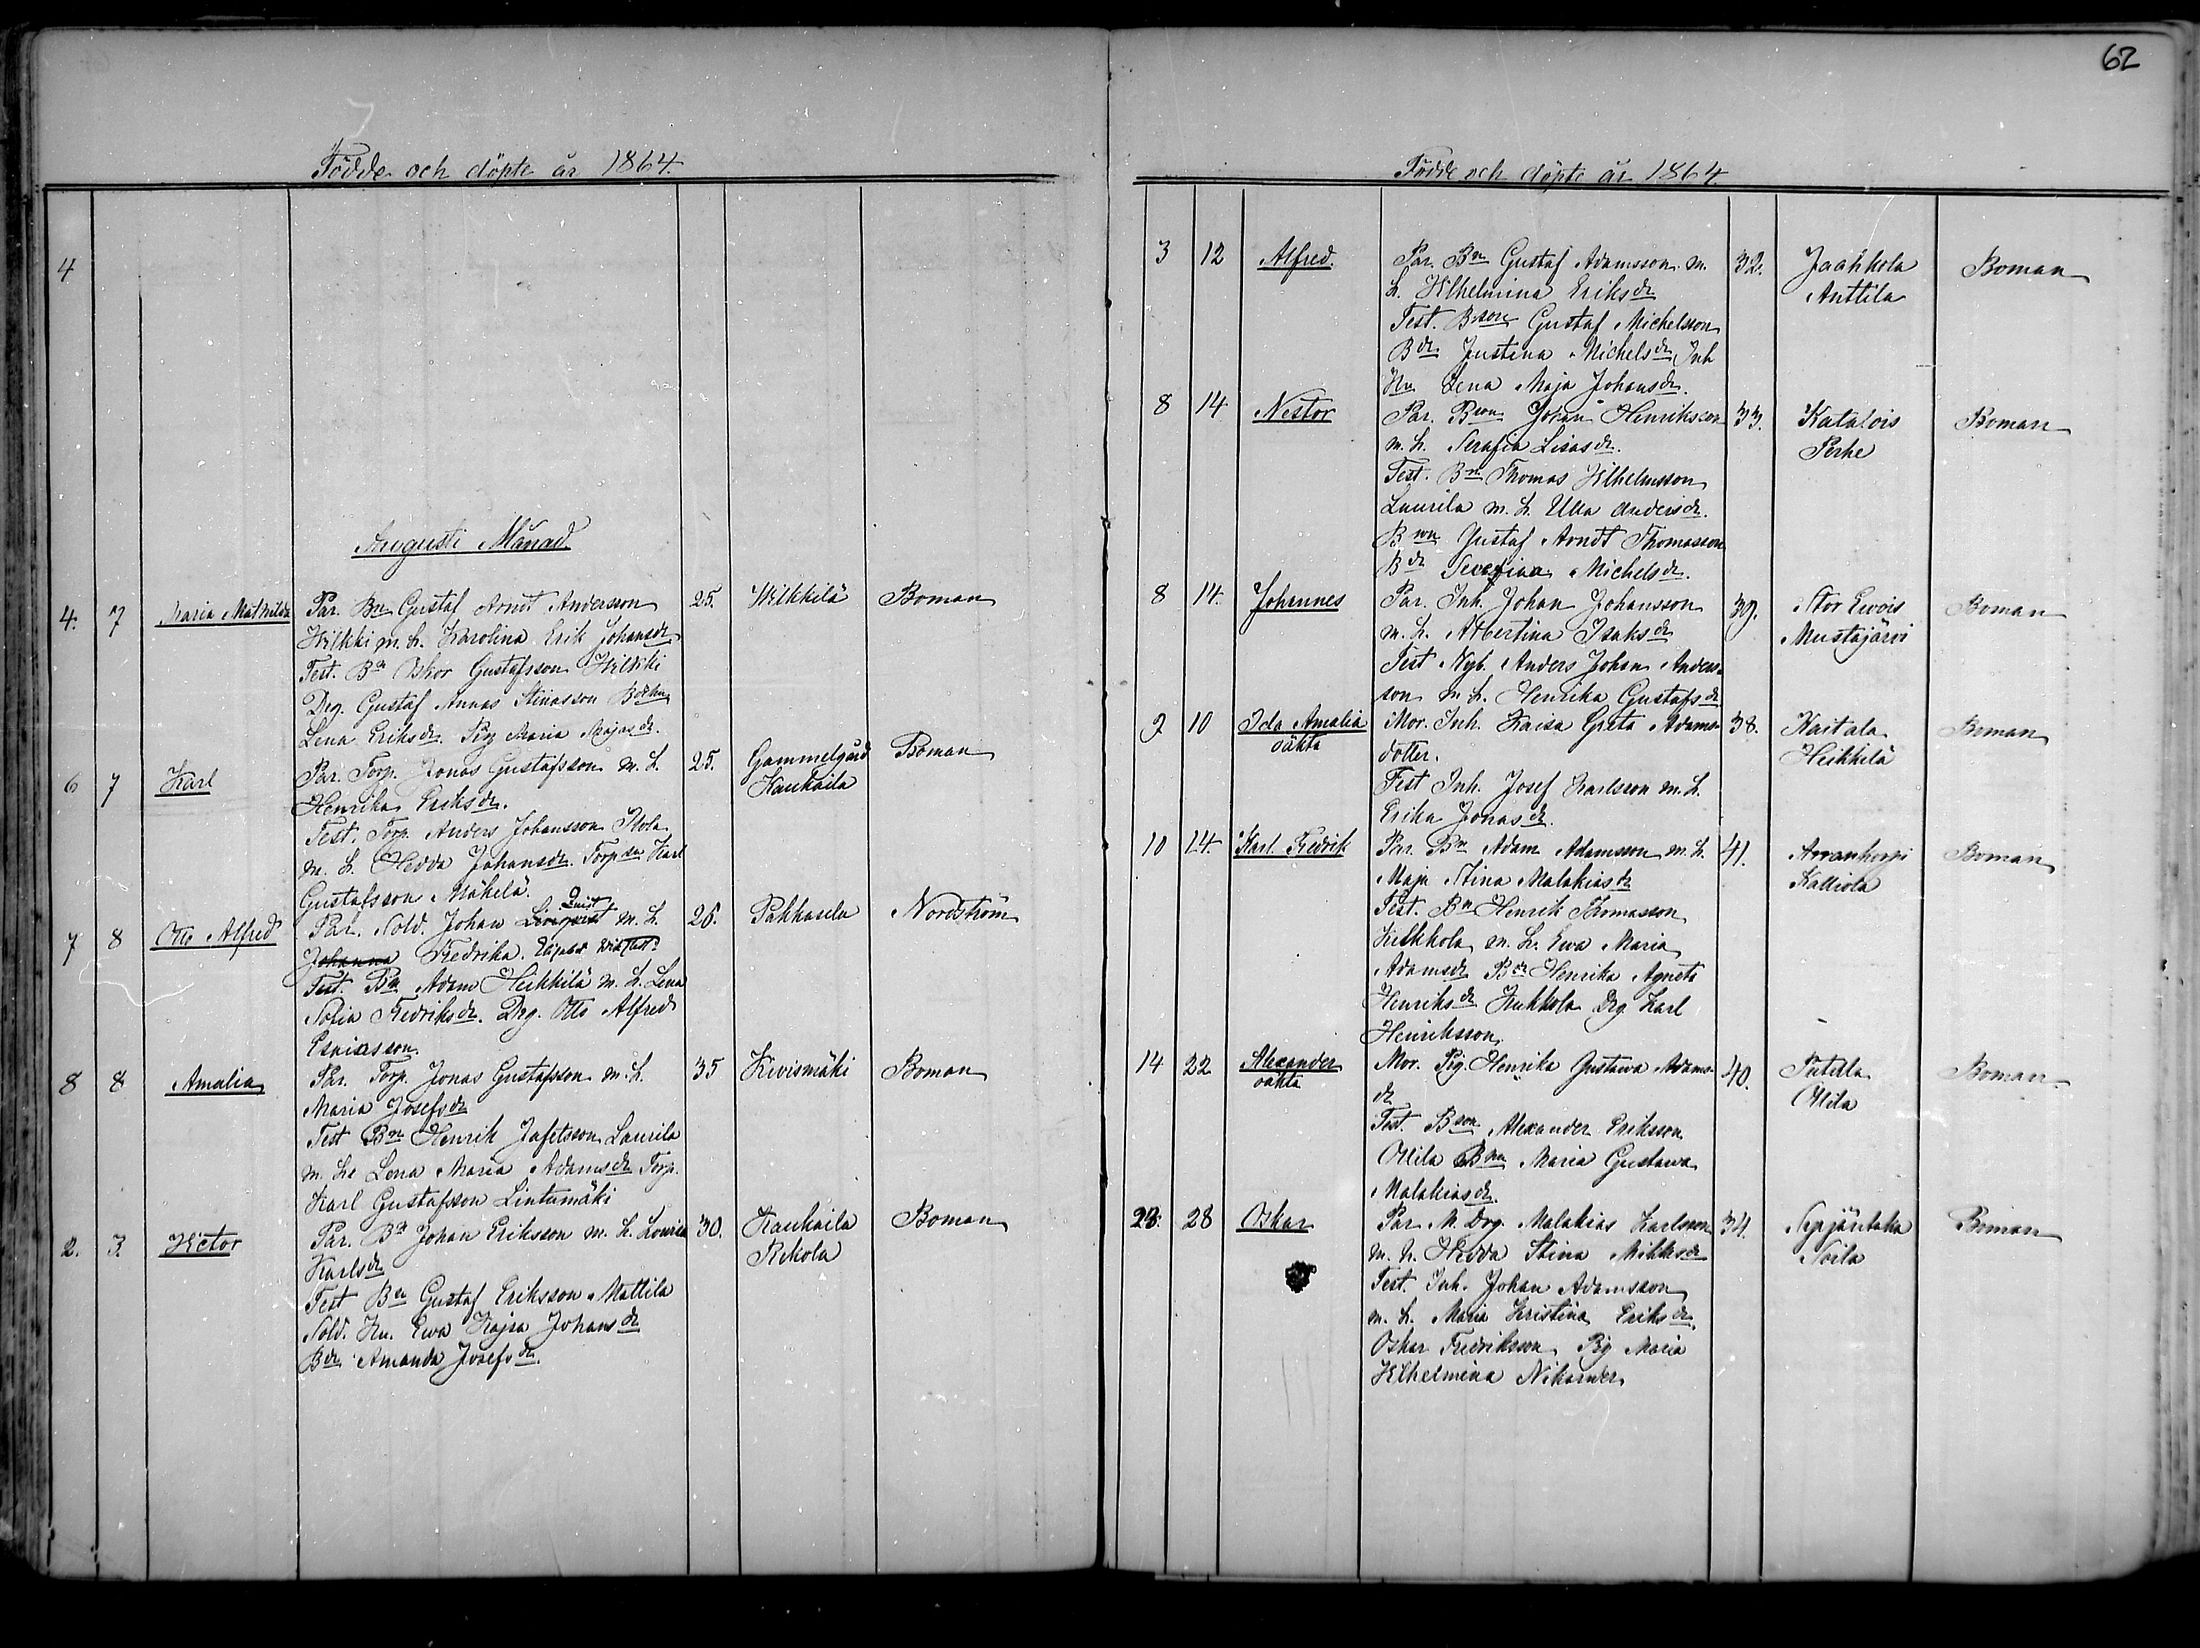 62
Födde och döpte år 1864.
4
Augusti Månad.
4. 7 Maria Mathilda Par. Bn Gustaf Arndt Andersson 25. Wilkkilä Boman
Wilkki m. h. Karolina Erik Johansdr
Test. Bn Oskar Gustafsson Wilkki
Drg. Gustaf Annas Stinasson
Lena Eriksdr. Pig Maria Majasdr.
6 7 Karl Par. Torp. Jonas Gustafsson m. h. 25. Gammelgård Boman
Henrika Eriksdr. Kauhaila
Test. Torp. Anders Johansson Ilola
m. h. Hedda Johansdr. Torpsn Karl
Gustafsson Mäkelä.
7 8 Otto Alfred Par. Sold. Johan Linqvist Quist m. h. 26. Pakkasela Nordström
Johanna Fredrika.
Test. Bn Adam Heikkilä m. h. Lena
Sofia Fredriksdr. Drg. Otto Alfred
Esaiasson.
8 8 Amalia Par. Torp. Jonas Gustafsson m. h. 35 Kivismäki Boman
Maria Josefsdr
Test Bn Henrik Jafetsson Laurila
m. h. Lena Maria Adamsdr Torp.
Karl Gustafsson Lintumäki
2. 3. Victor Par. Bn Johan Eriksson m. h. Lovisa 30. Kauhaila Boman
Karlsdr Rekola
Test Bn Gustaf Eriksson Mattila
Sold. Hu. Ewa Kajsa Johansdr
Bdr Amanda Josefsdr.
Födde och döpte år 1864.
3 12 Alfred. Par. Bn Gustaf Adamsson m. 32. Jaahkola Boman
h. Wilhelmina Eriksdr Anttila
Test. Bson Gustaf Michelsson
Bdr Justina Michelsdr, Inh
Hu Lena Maja Johansdr.
8 14 Nestor Par. Bson Johan Henriksson 33. Katalois Boman
m. h. Serafia Lisasdr. Perhe
Test. Bn Thomas Wilhelmsson
Laurila m. h. Ulla Andersdr.
Bson Gustaf Arndt Thomasson
Bdr Severina Michelsdr.
8 14. Johannes Par. Inh. Johan Johansson 39. Stor Ewois Boman
m. h. Albertina Isaksdr Mustajärvi
Test Nyb. Anders Johan Anders-
son m. h. Henrika Gustafsdr
9 10 Ida Amalia Mor. Inh. Kaisa Greta Adams- 38. Kaitala Boman
oäkta dotter. Heikkilä
Test Inh. Josef Karlsson m. h.
Erika Jonasdr.
10 14. Karl Fredrik Par. Bn Adam Adamsson m. h. 41. Arrankorpi Boman
Maja Stina Malakiasdr Kalliola
Test. Bn Henrik Thomasson
m. h. Ewa Maria
Adamsdr Bdr Henrika Agneta
Henriksdr Kukkola Drg Karl
Henriksson
14 22 Alexander Mor. Pig. Henrika Gustava Adams- 40. Putula Boman
oäkta dr Ollila
Test. Bson Alexander Eriksson
Ollila Maria Gustava
Malakiasdr.
23. 28 Oskar Par. M. Drg. Malakias Karlsson 34. Syrjäntaka Boman
m. h. Hedda Stina Mikksdr Noila
Test. Inh. Johan Adamsson
m. h. Maria Kristina Eriksdr.
Oskar Fredriksson Pig Maria
Wilhelmina Nikander